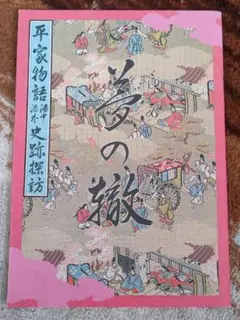 平家物語 洛中洛外 史跡探訪
夢の轍